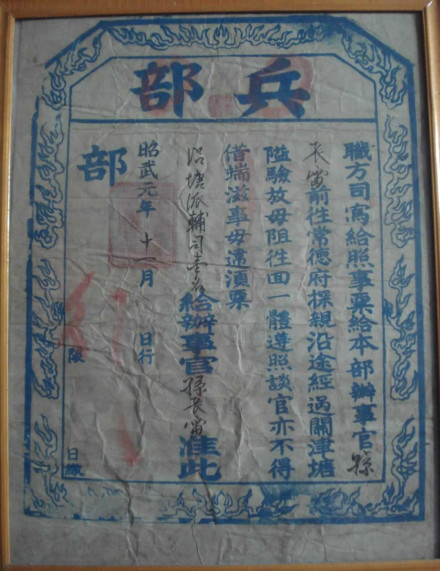 兵部
職方司寫給照事票給本部辦事官孫
長甯前往常德府探親沿途經過關津塘
隘驗放毋阻往回一體遵照談官亦不得
借端滋事毋違須票
沿塘派輔司
給辦事官孫長甯准此
昭武元年十一月 日行
部
限 日繳